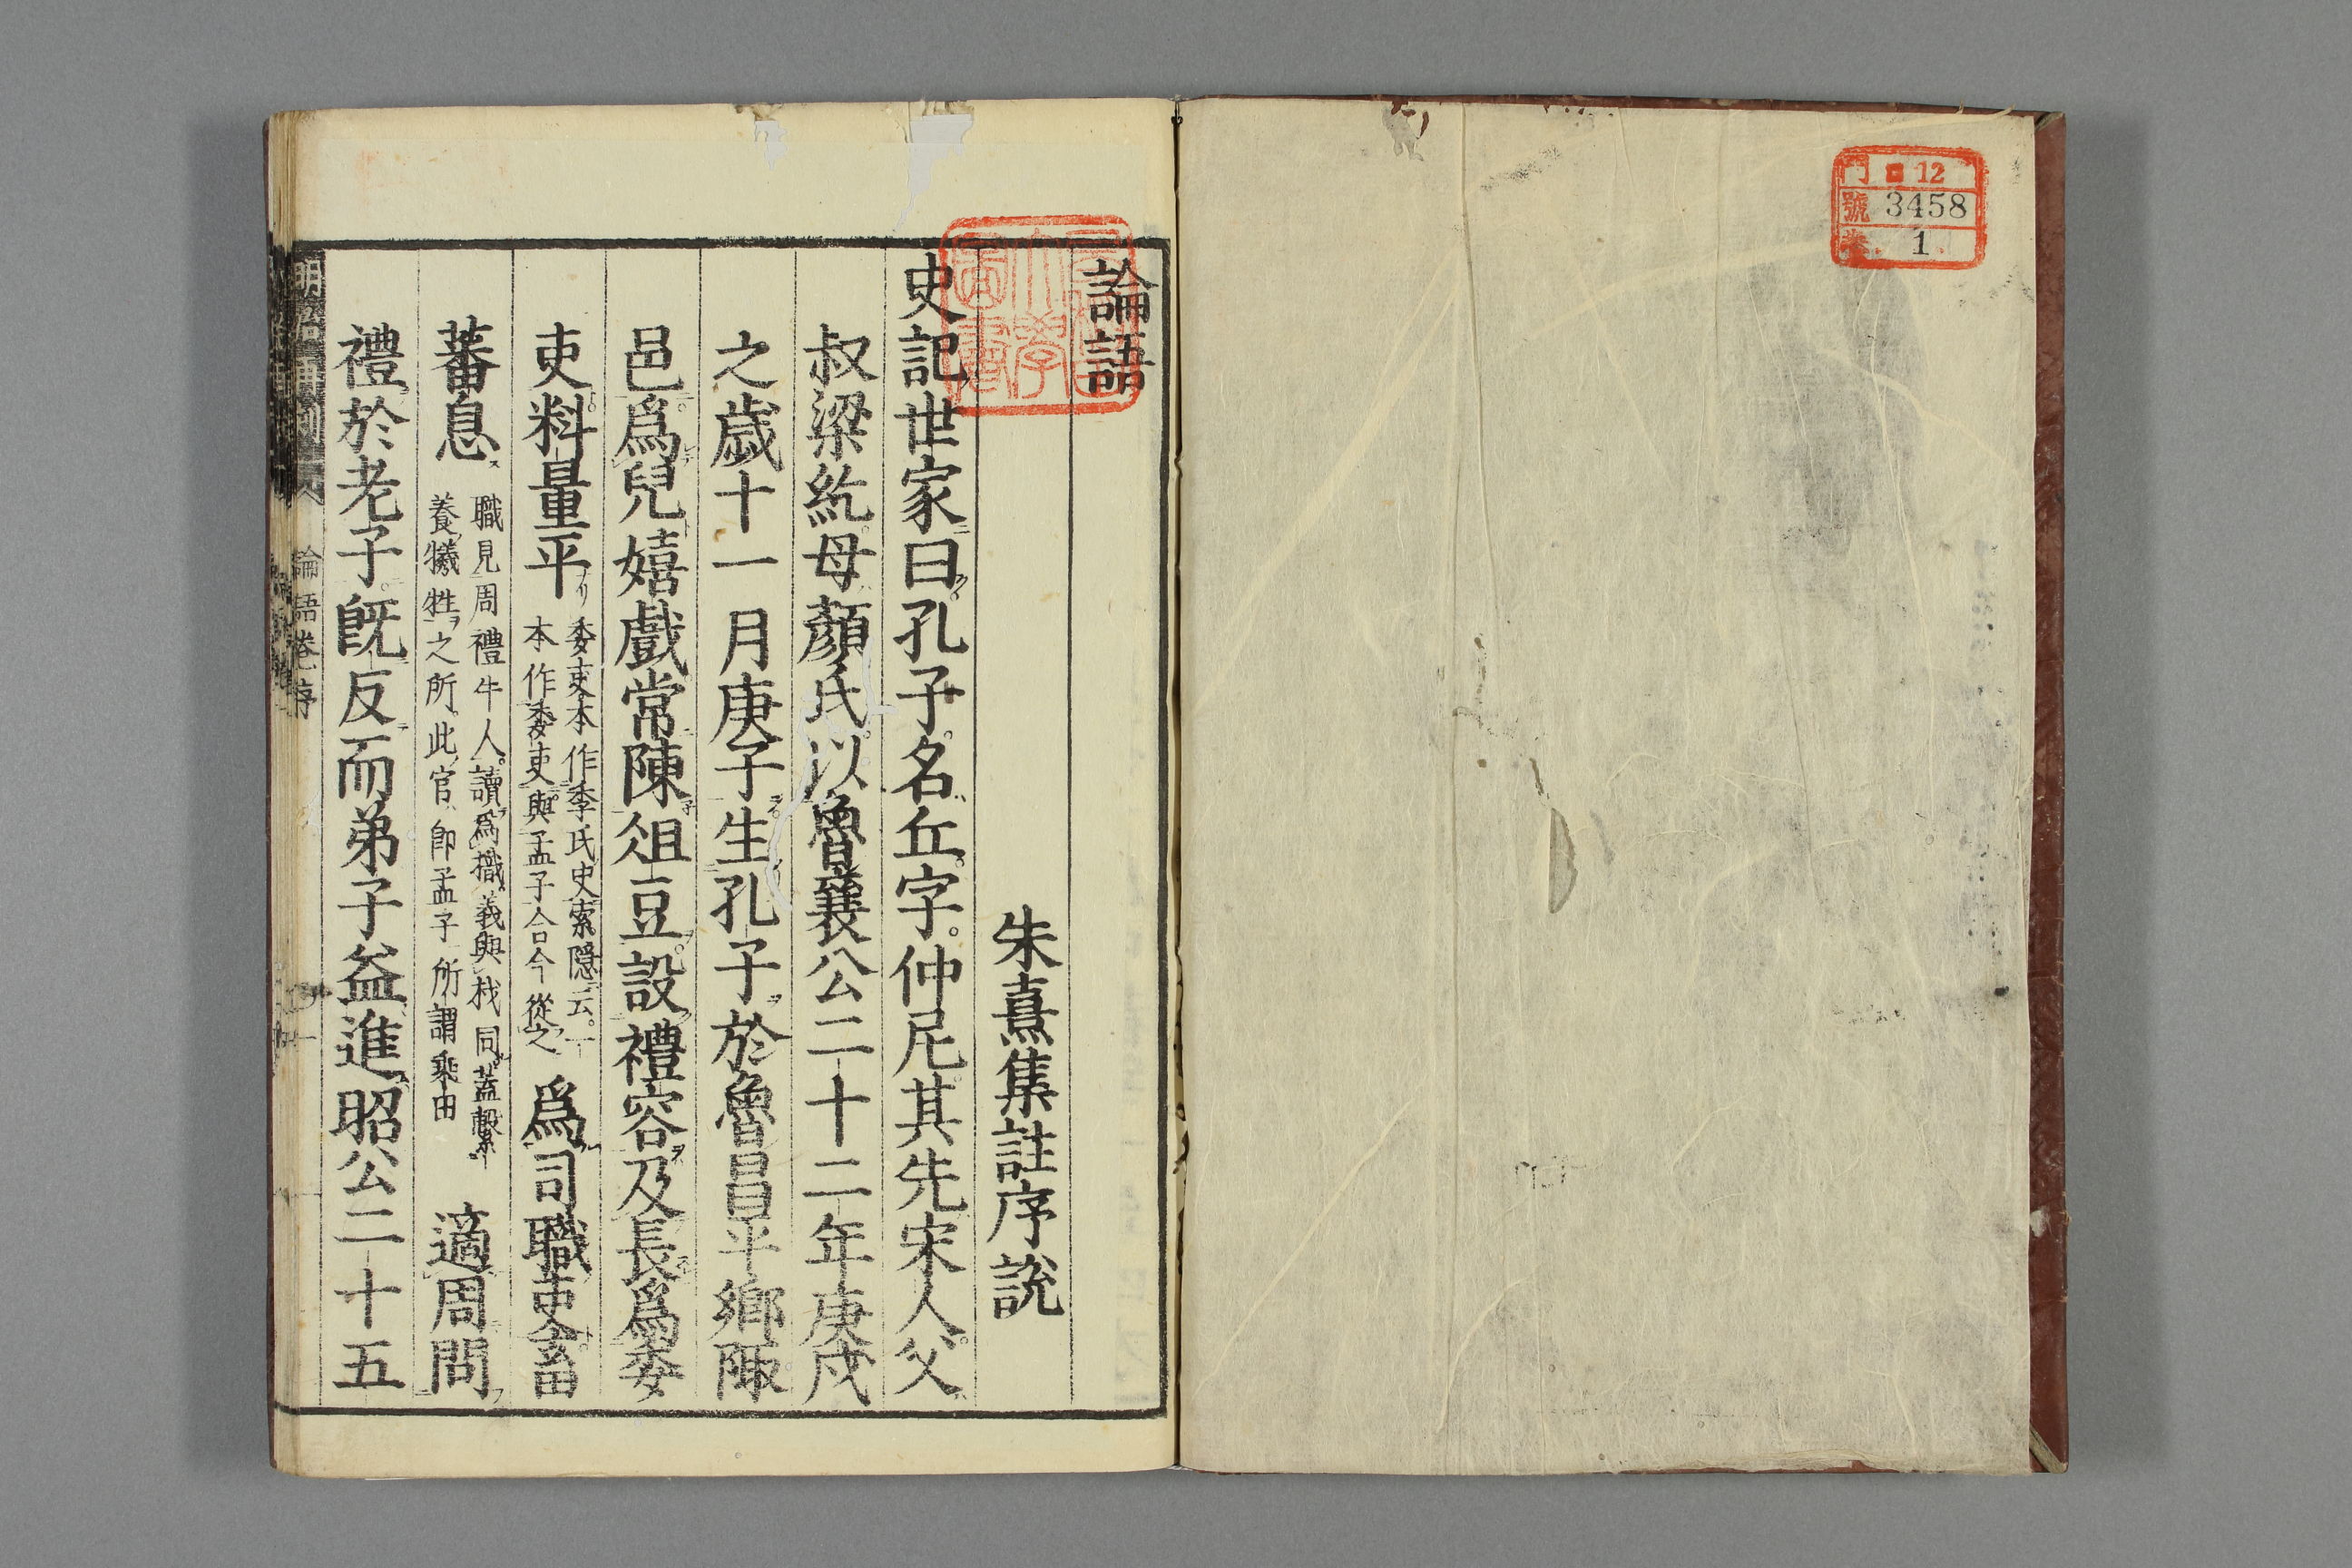 門 ロ 12
號 3458
卷 1
論語
朱熹集註序說
史記世家曰孔子名丘字仲尼其先宋人父
叔梁紇母顏氏以魯襄公二十二年庚戌
之歲十一月庚子生孔子於魯昌平鄉陬
邑爲兒嬉戲常陳俎豆設禮容及長爲委
吏料量平
委吏本作季氏史索隱云一
本作委吏與孟子合今從之
爲司職吏畜
蕃息
職見周禮牛人讀爲樴義與杙同蓋繫
養犧牲之所此官卽孟子所謂乘田
適周問
禮於老子既反而弟子益進昭公二十五
論語卷序